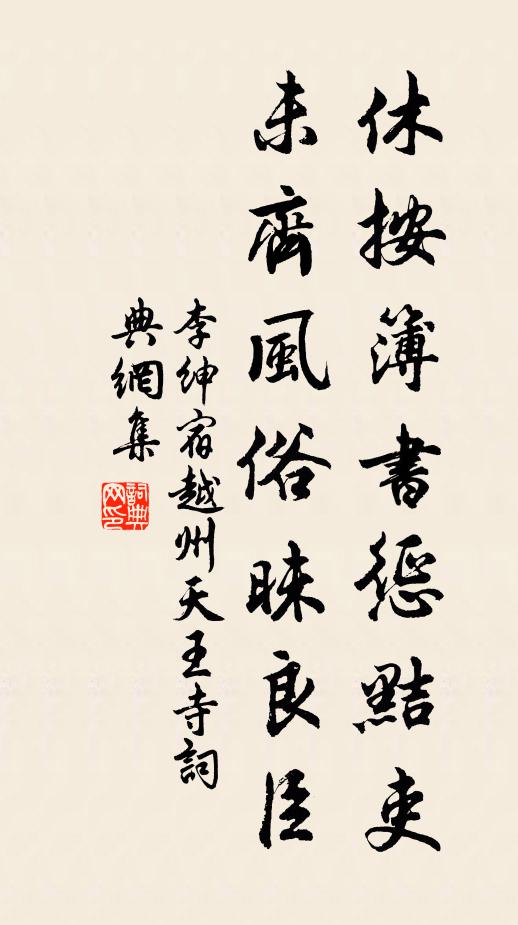 休按簿書懲黠吏
未齊風俗昧良臣
李紳宿越州天王寺詞
典網集
詞典
网印